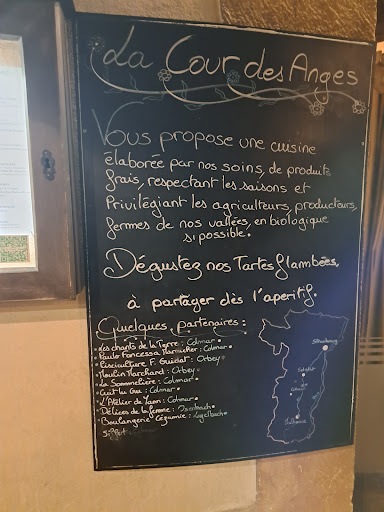 La Cour des Anges
Vous propose une cuisine
élaborée par nos soins, de produits
frais, respectant les saisons et
Privilégiant les agriculteurs, producteurs,
fermes de nos vallées, en biologique
si possible.
Dégustez nos Tartes flambées,
à partager dès l'aperitif.
Quelques partenaires :
Les chants de la Terre : Colmar
Paulo Fancessa Maraicher : Colmar
Pisciculture F. Guidat : Orbey
Moulin Marchand : Orbey
La Sommelière : Colmar
Cuit lu Cru : Colmar
L'Atelier de Yann : Colmar
Délices de la ferme : Osenbach
Boulangerie Cégamie : Logelbach
Strasbourg
Sélestat
Colmar
Mulhouse